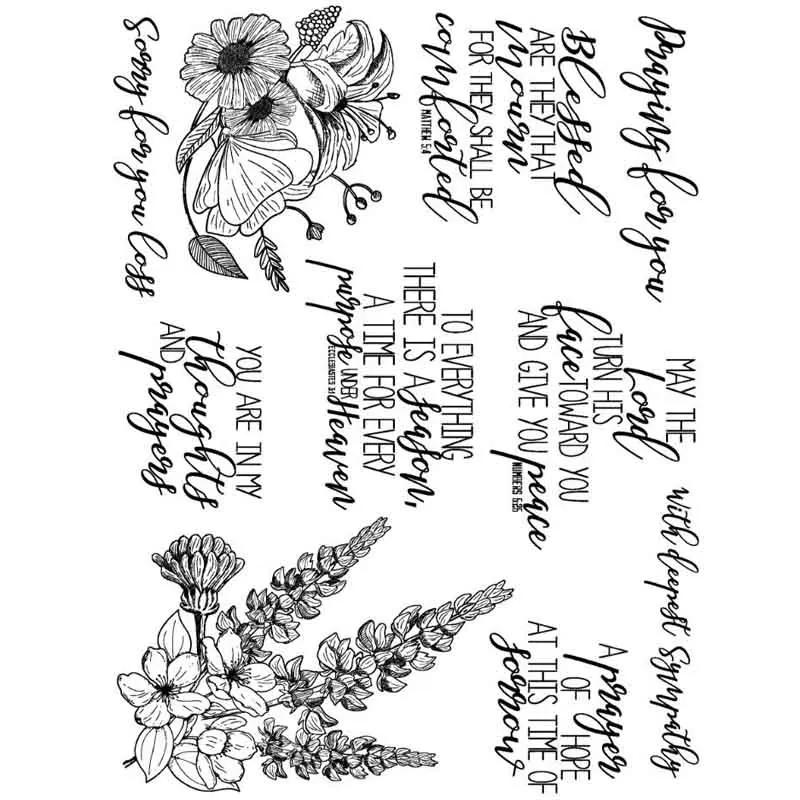 Praying for you
Blessed
ARE THEY THAT
mourn
FOR THEY SHALL BE
comforted
MATTHEW 5:4
Sorry for you loss
MAY THE
Lord
TURN HIS
face TOWARD YOU
AND GIVE YOU peace
NUMBERS 6:26
TO EVERYTHING
THERE IS A season,
A TIME FOR EVERY
purpose UNDER Heaven
ECCLESIASTES 3:1
YOU ARE IN MY
thoughts
AND prayers
with deepest Sympathy
A prayer
OF HOPE
AT THIS TIME OF
sorrow